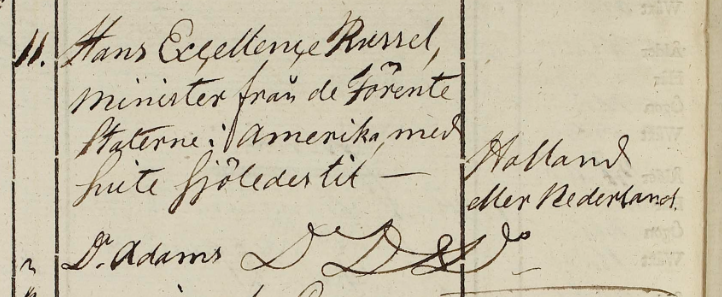 11. Hans Excellence Russel,
minister från de Förente
Staterne i Amerika, med
suite sjöledes til — Holland
eller Nederland.
Dr. Adams Do Do & Do